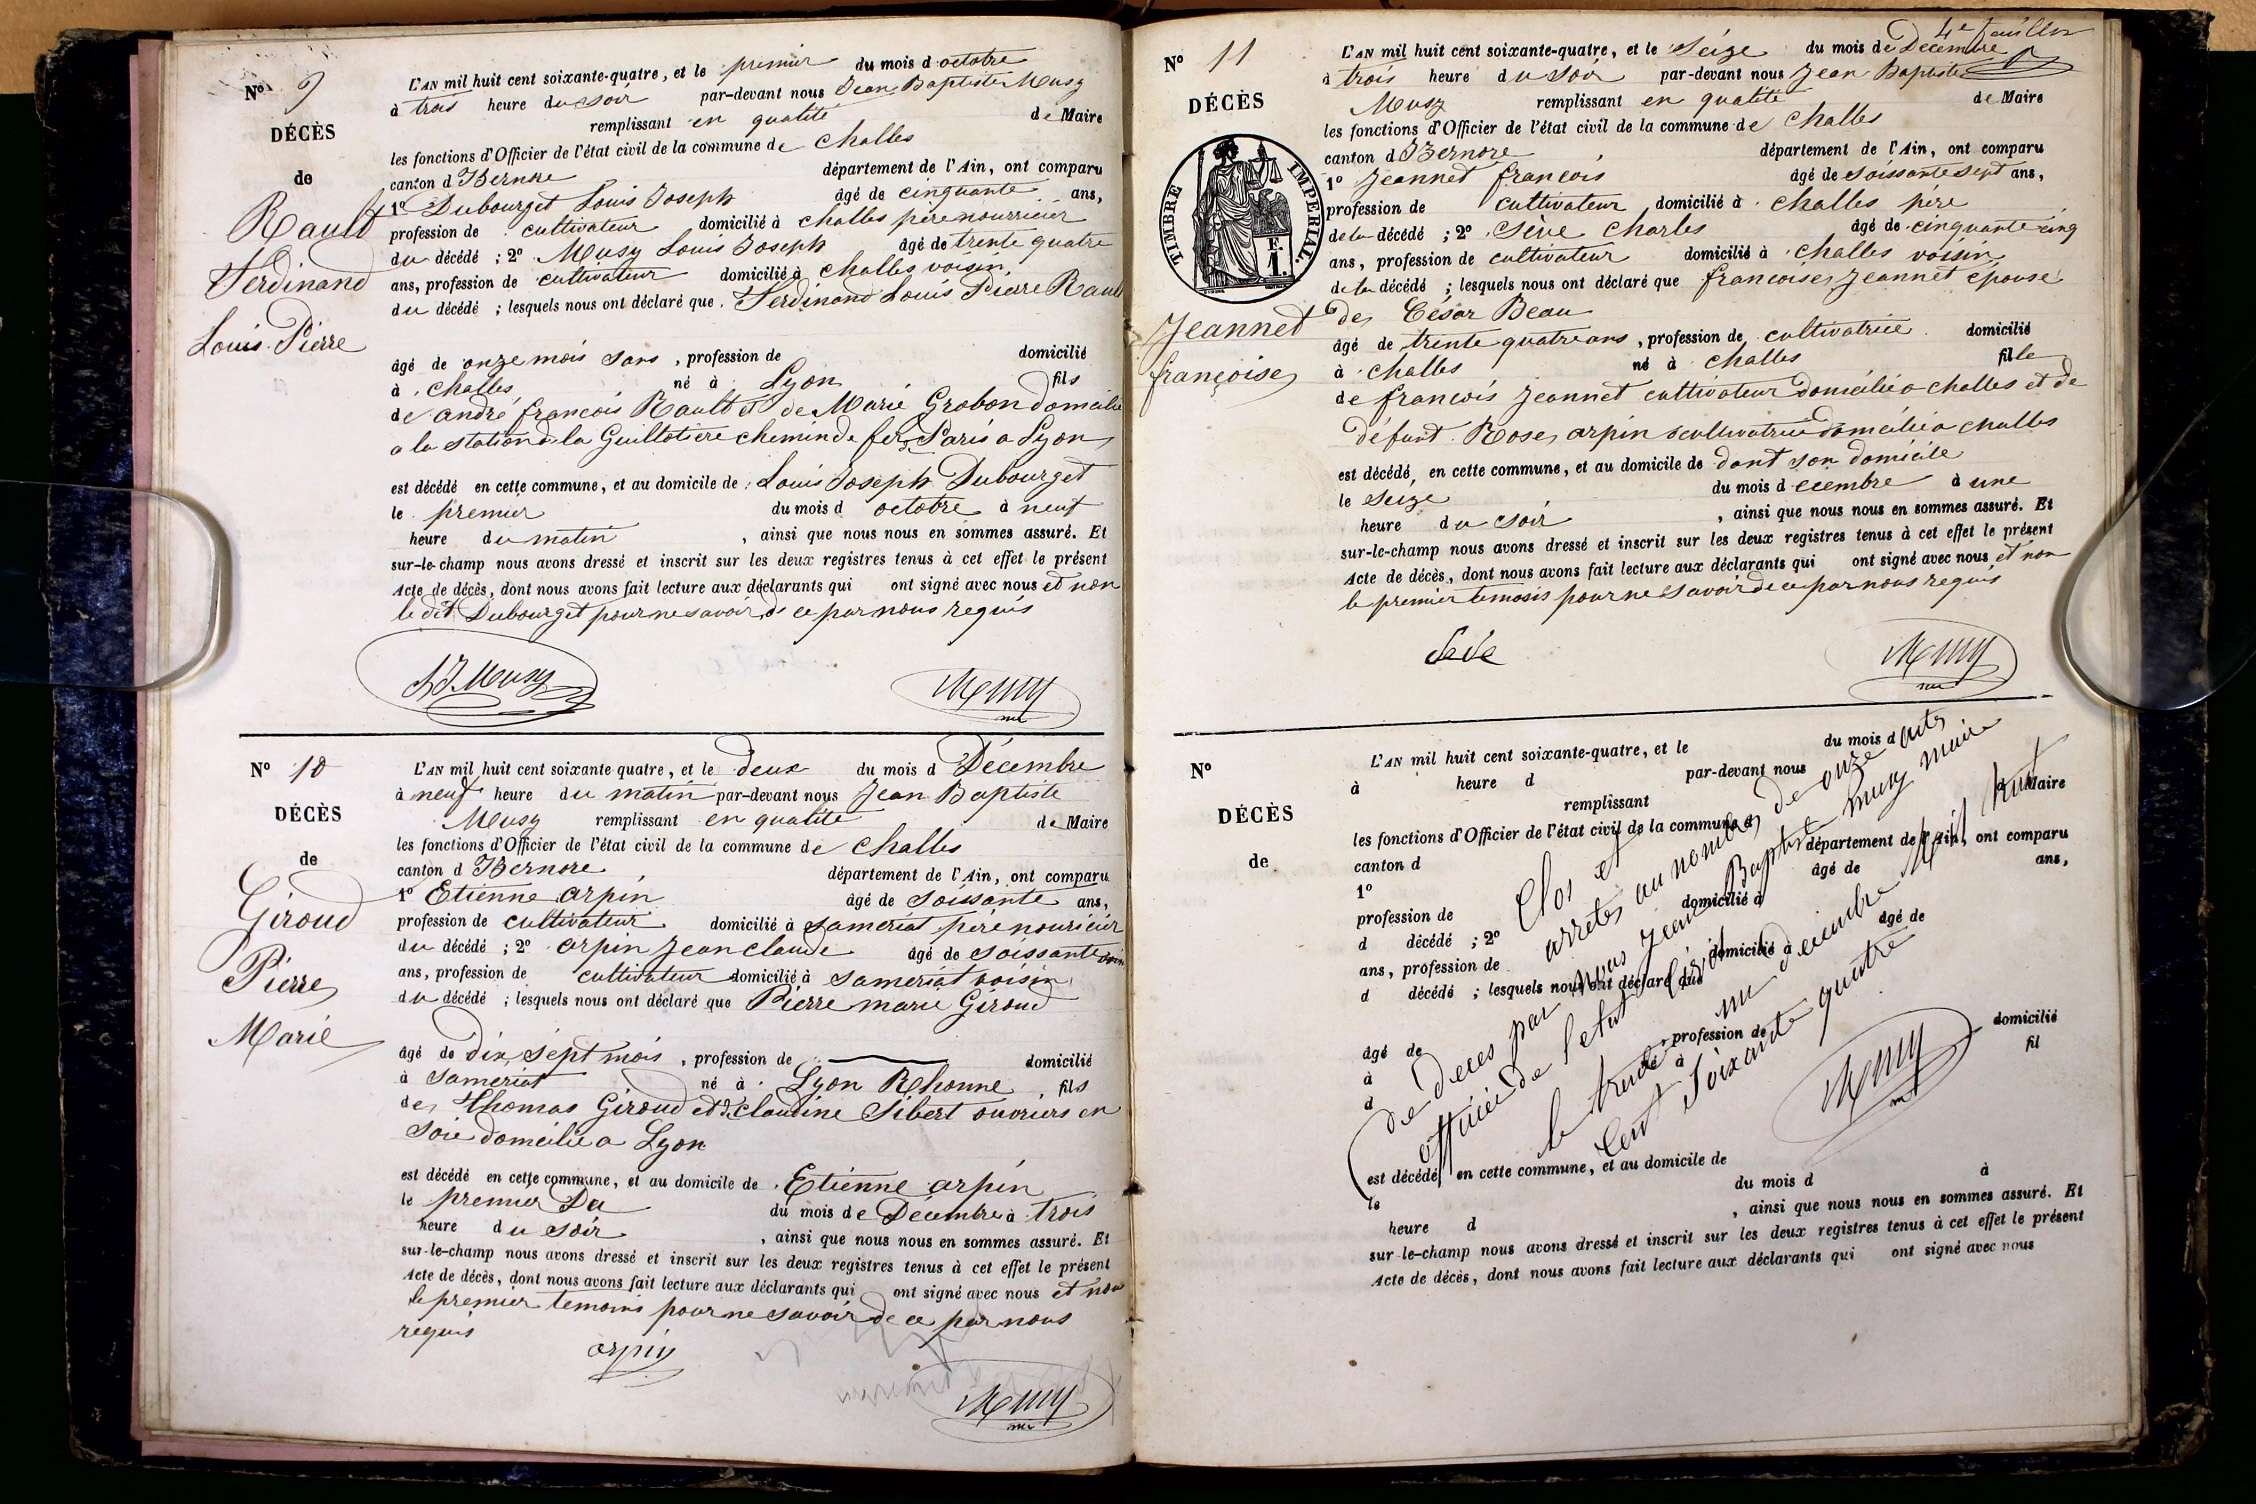 N° 9
DÉCÈS
de
Rault
Ferdinand
Louis Pierre
L'AN mil huit cent soixante-quatre, et le premier du mois d octobre
à trois heure du soir par-devant nous Jean Baptiste Musy
remplissant en qualité de Maire
les fonctions d'Officier de l'état civil de la commune de Challes
canton d Izernore département de l'Ain, ont comparu
1° Dubourget Louis Joseph âgé de cinquante ans,
profession de cultivateur domicilié à Challes père nourricier
du décédé ; 2° Musy Louis Joseph âgé de trente quatre
ans, profession de cultivateur domicilié à Challes voisin
du décédé ; lesquels nous ont déclaré que Ferdinand Louis Pierre Rault
âgé de onze mois sans , profession de domicilié
à Challes né à Lyon fils
de andré françois Rault et de Marie Grobon domicilié
a la station de la Guillotiere chemin de fer Paris a Lyon
est décédé en cette commune, et au domicile de Louis Joseph Dubourget
le premier du mois d octobre à neuf
heure du matin , ainsi que nous nous en sommes assuré. Et
sur-le-champ nous avons dressé et inscrit sur les deux registres tenus à cet effet le présent
Acte de décès, dont nous avons fait lecture aux déclarants qui ont signé avec nous et non
le dit Dubourget pour ne savoir de ce par nous requis
L J Musy
Musy
N° 10
DÉCÈS
de
Giroud
Pierre
Marie
L'AN mil huit cent soixante quatre, et le deux du mois d Décembre
à neuf heure du matin par-devant nous Jean Baptiste
Musy remplissant en qualité de Maire
les fonctions d'Officier de l'état civil de la commune de Challes
canton d Izernore département de l'Ain, ont comparu
1° Etienne arpin âgé de soissante ans,
profession de cultivateur domicilié à Samériat père nouricier
du décédé ; 2° arpin Jean claude âgé de soissante
ans, profession de cultivateur domicilié à Samériat voisin
du décédé ; lesquels nous ont déclaré que Pierre marie Giroud
âgé de dix sept mois , profession de domicilié
à Samériat né à Lyon Rhonne fils
de Thomas Giroud et de claudine Sibert ouvriers en
soie domicilié a Lyon
est décédé en cette commune, et au domicile de Etienne arpin
le premier Du du mois de Decembre à trois
heure du soir , ainsi que nous nous en sommes assuré. Et
sur-le-champ nous avons dressé et inscrit sur les deux registres tenus à cet effet le présent
Acte de décès, dont nous avons fait lecture aux déclarants qui ont signé avec nous et non
le premier temoins pour ne savoir de ce par nous
requis
arpin
Musy
4e feuillet
N° 11
DÉCÈS
TIMBRE IMPERIAL.
F.
1.
Jeannet
françoise
L'AN mil huit cent soixante-quatre, et le Seize du mois de Décembre
à trois heure du soir par-devant nous Jean Baptiste
Musy remplissant en qualité de Maire
les fonctions d'Officier de l'état civil de la commune de Challes
canton d Izernore département de l'Ain, ont comparu
1° Jeannet françois âgé de soissante sept ans,
profession de cultivateur domicilié à Challes père
de la décédé ; 2° Sève Charles âgé de cinquante cinq
ans, profession de cultivateur domicilié à Challes voisin
de la décédé ; lesquels nous ont déclaré que françoise Jeannet épouse
de César Beau
âgé de trente quatre ans , profession de cultivatrice domicilié
à Challes né à Challes fille
de françois Jeannet cultivateur domicilié a Challes et de
défunt Rose arpin cultivatrice domicilié a Challes
est décédé en cette commune, et au domicile de dont son domicile
le seize du mois d ecembre à une
heure du soir , ainsi que nous nous en sommes assuré. Et
sur-le-champ nous avons dressé et inscrit sur les deux registres tenus à cet effet le présent
Acte de décès, dont nous avons fait lecture aux déclarants qui ont signé avec nous et non
le premier temoins pour ne savoir de ce par nous requis
Seve
Musy
N°
DÉCÈS
de
L'AN mil huit cent soixante-quatre, et le du mois d
à heure d par-devant nous
remplissant Maire
les fonctions d'Officier de l'état civil de la commune d
canton d département de l'Ain, ont comparu
1° âgé de ans,
profession de domicilié à
d décédé ; 2° âgé de
ans, profession de domicilié à
d décédé ; lesquels nous ont déclaré que
âgé de , profession de domicilié
à né à fil
d
est décédé en cette commune, et au domicile de
le du mois d à
heure d , ainsi que nous nous en sommes assuré. Et
sur-le-champ nous avons dressé et inscrit sur les deux registres tenus à cet effet le présent
Acte de décès, dont nous avons fait lecture aux déclarants qui ont signé avec nous
Clos et
arretés au nombre de onze actes
de deces par nous Jean Baptiste Musy maire
officier de l'etat civil
le trente un decembre Mil huit
Cent Soixante quatre
Musy